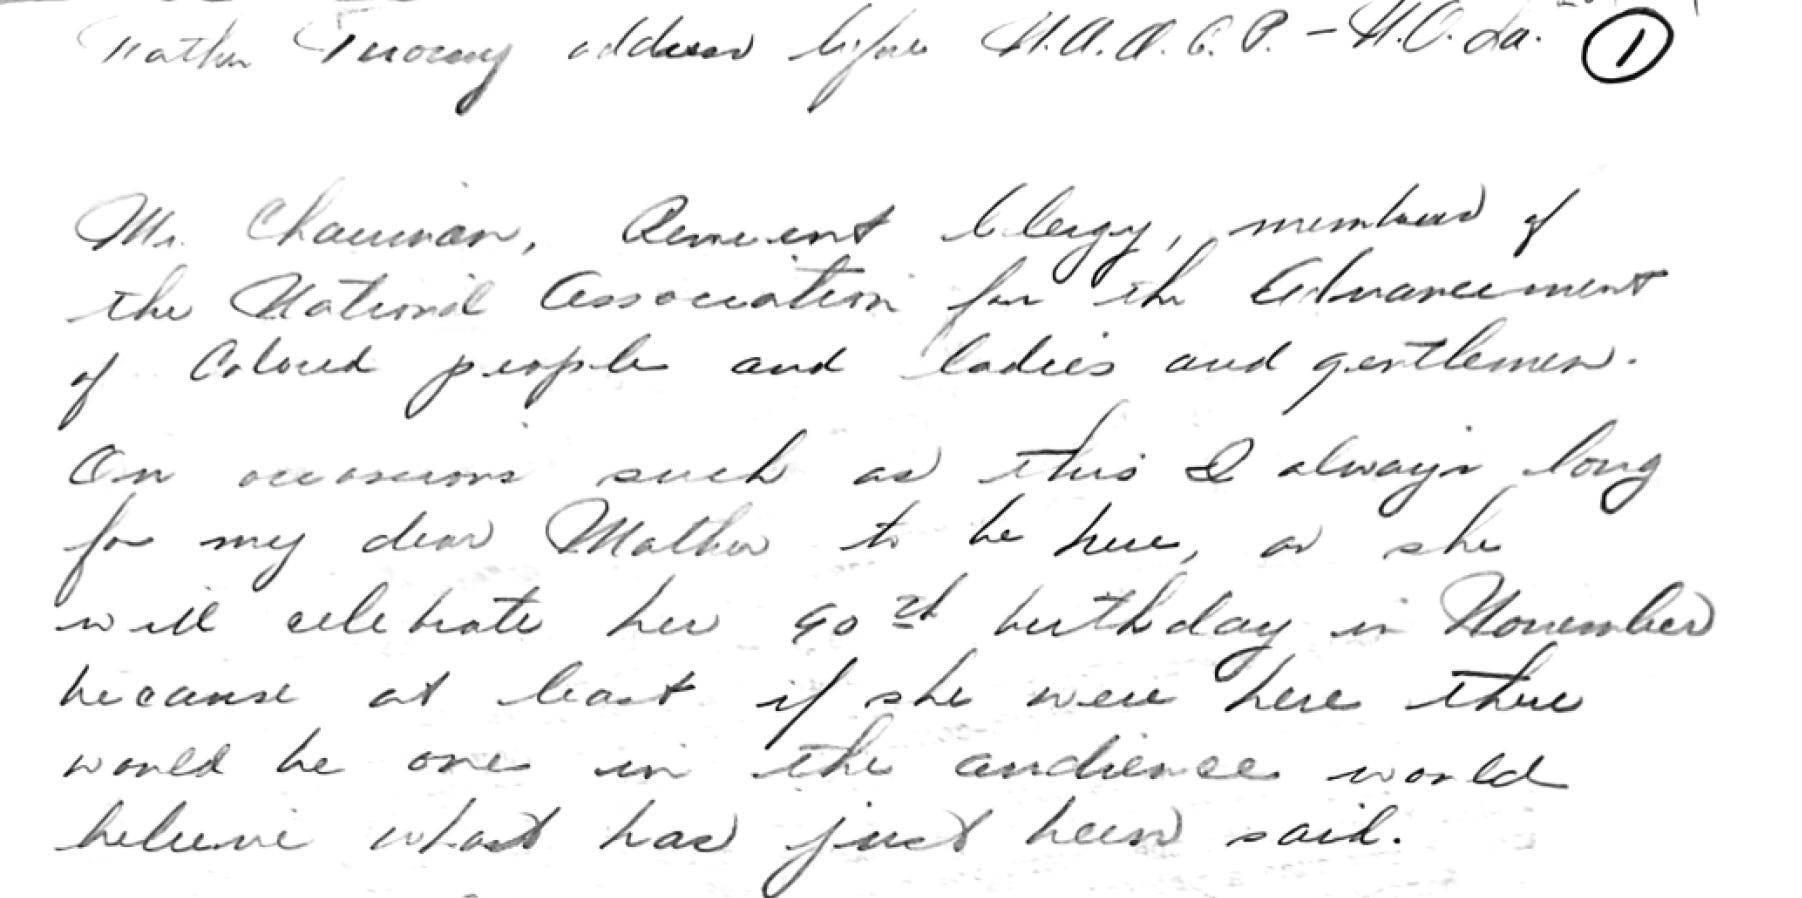 Father Twomey address before N.A.A.C.P. - N.O. La. 1
Mr. Chairman, Reverent Clergy, members of
the National Association for the Advancement
of Colored people and ladies and gentlemen.
On occasions such as this I always long
for my dear Mother to be here, as she
will celebrate her 90th birthday in November
because at least if she were here there
would be one in the audience would
believe what has just been said.